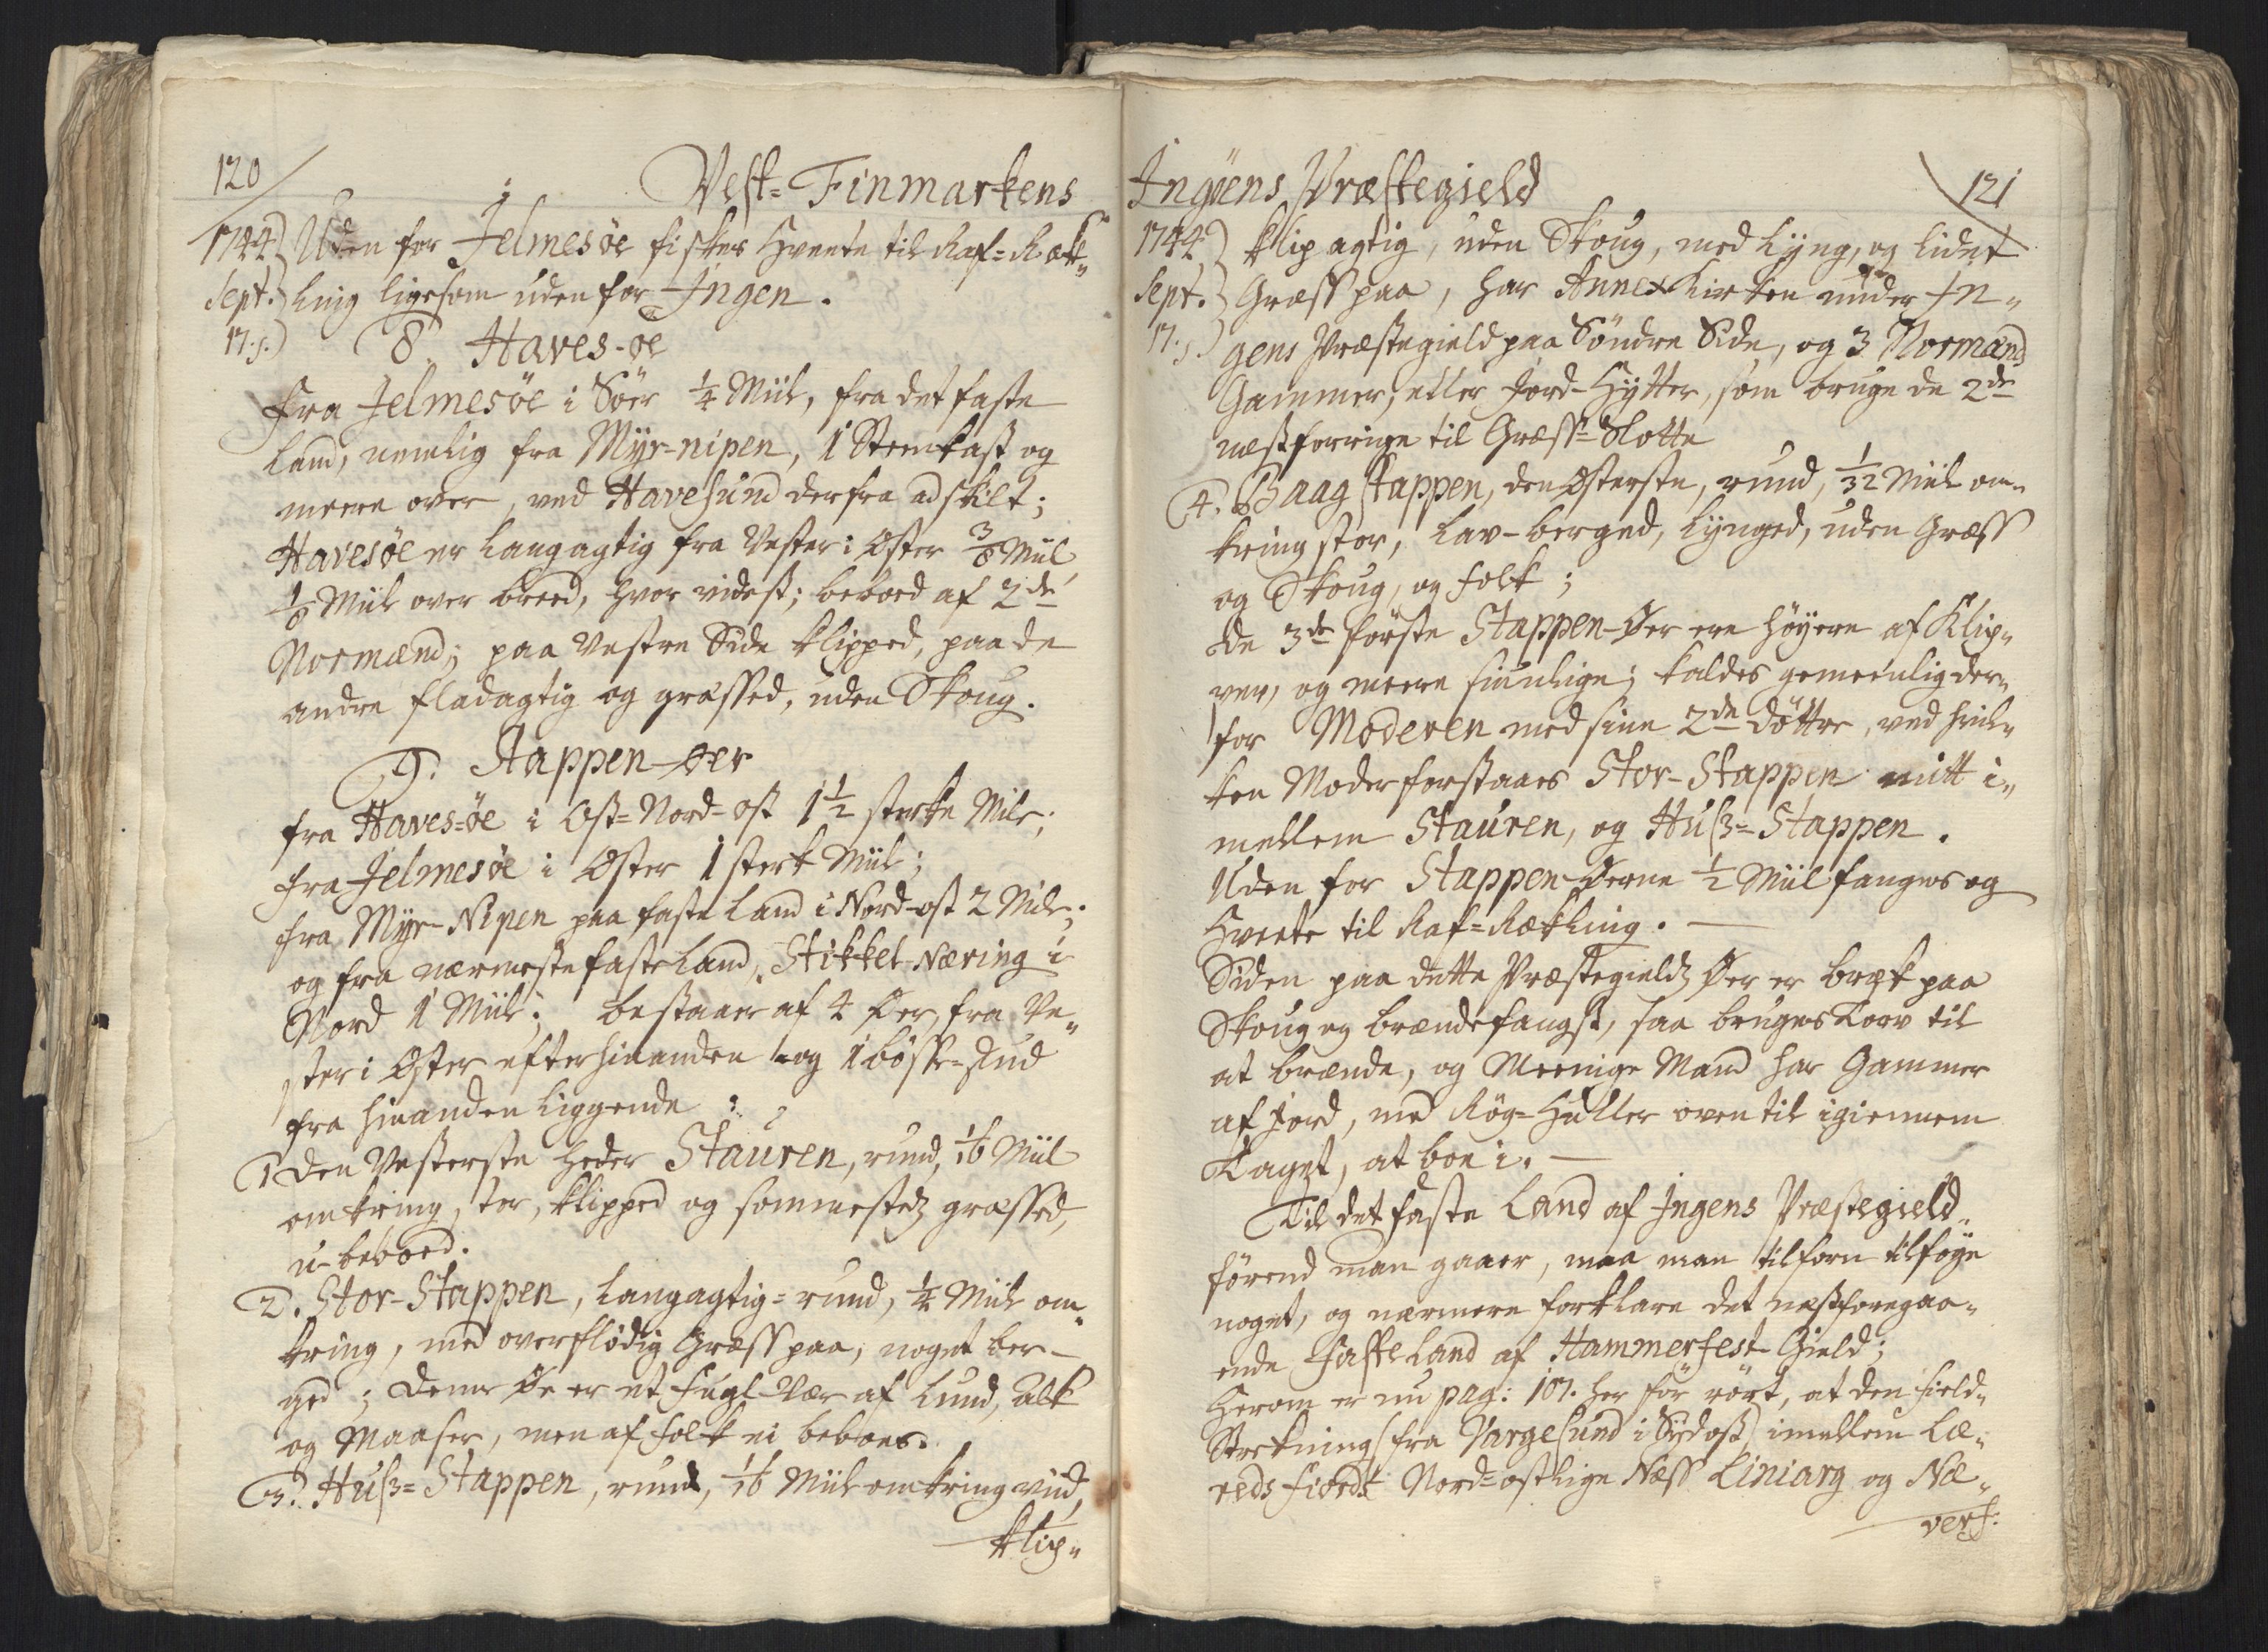 120
Vest-Finmarkens
1744 Uden for Jelmesøe fiskes Hveete til Raf-Ræk-
Sept. ling ligesom uden for Ingen.
17: s. 8. Haves-øe
fra Jelmesöe i Söer 1/4 Miil, fra det faste
Land, nemlig fra Myr-nipen, 1 Steenkast og
meere over, ved Havesund derfra adskilt;
Havesøe er langagtig fra Vester i Øster 3/8 Miil
1/8 Miil over breed, hvor videst; beboed af 2de
Normænd; paa Vestre Side klipped, paa de
andre fladagtig og græssed, uden Skoug.
9. Stappen-øer
fra Haves-öe i Ost-Nord-ost 1 1/2 sterke Mile;
fra Jelmesøe i Øster 1 sterk Miil;
fra Myr-Nipen paa faste Land i Nord-ost 2 Mile;
og fra nærmeste faste Land, Stikkel-Næring i
Nord 1 Miil; bestaaer af 4 Øer, fra Ve-
ster i Øster efter hinanden og 1 bösse-Skud
fra hinanden liggende:
1 Den Vesterste heder Stauren, rund, 1/16 Miil
omkring, stor, klipped og sommestedz græssed,
u-beboed.
2. Stor-Stappen, langagtig-rund, 1/4 Miil om-
kring, med overflödig Græss paa, noget ber-
ged; denne Øe er et Fugl-Vær af Lund, Alk
og Maaser, men af folk ei beboes.
3. Husz-Stappen, rund, 1/16 Miil omkring viid,
klip-
Ingöens Præstegield
121
1744 klipagtig, uden Skoug, med Lyng, og lidet
Sept. Græss paa, har Annex Kirken under In-
17: s. gens Præstegield paa Söndre Side, og 3 Normænd
Gammer, eller Jord-Hytter, som bruge de 2de
næstforrige til Græss-Slotte
4. Baagstappen, den Østerste, rund, 1/32 Miil om-
kring stor, lav-berged, lynged, uden Græss
og Skoug, og folk;
De 3de förste Stappen-Øer ere höyere af Klip-
per, og meere siunlige; kaldes gemeenlig der-
for Moderen med sine 2de döttre, ved hvil-
ken Moder forstaaes Stor-Stappen mitt i-
mellem Stauren, og Husz-Stappen.
Uden for Stappen-Øerne 1/2 Miil fanges og
Hveete til Raf-Rækling.
Siden paa dette Præstegieldz Øer er bræk paa
Skoug og brændefangst, saa bruges Torv til
at brænde, og Meenige Mand har Gammer
af Jord, med Rög-Huller oven til igiennem
Taget, at boe i.
Til det faste Land af Ingens Præstegield
förend man gaaer, maa man tilforn tilföye
noget, og nærmere forklare det næstforegaa-
ende Faste Land af Hammerfest-Gield;
Herom er nu pag: 107. her för rört, at den field-
Strekning (fra Vargesund i Sydost) imellem Læ-
reds Fiords Nord-ostlige Næss Liniarg og Næ-
verf: